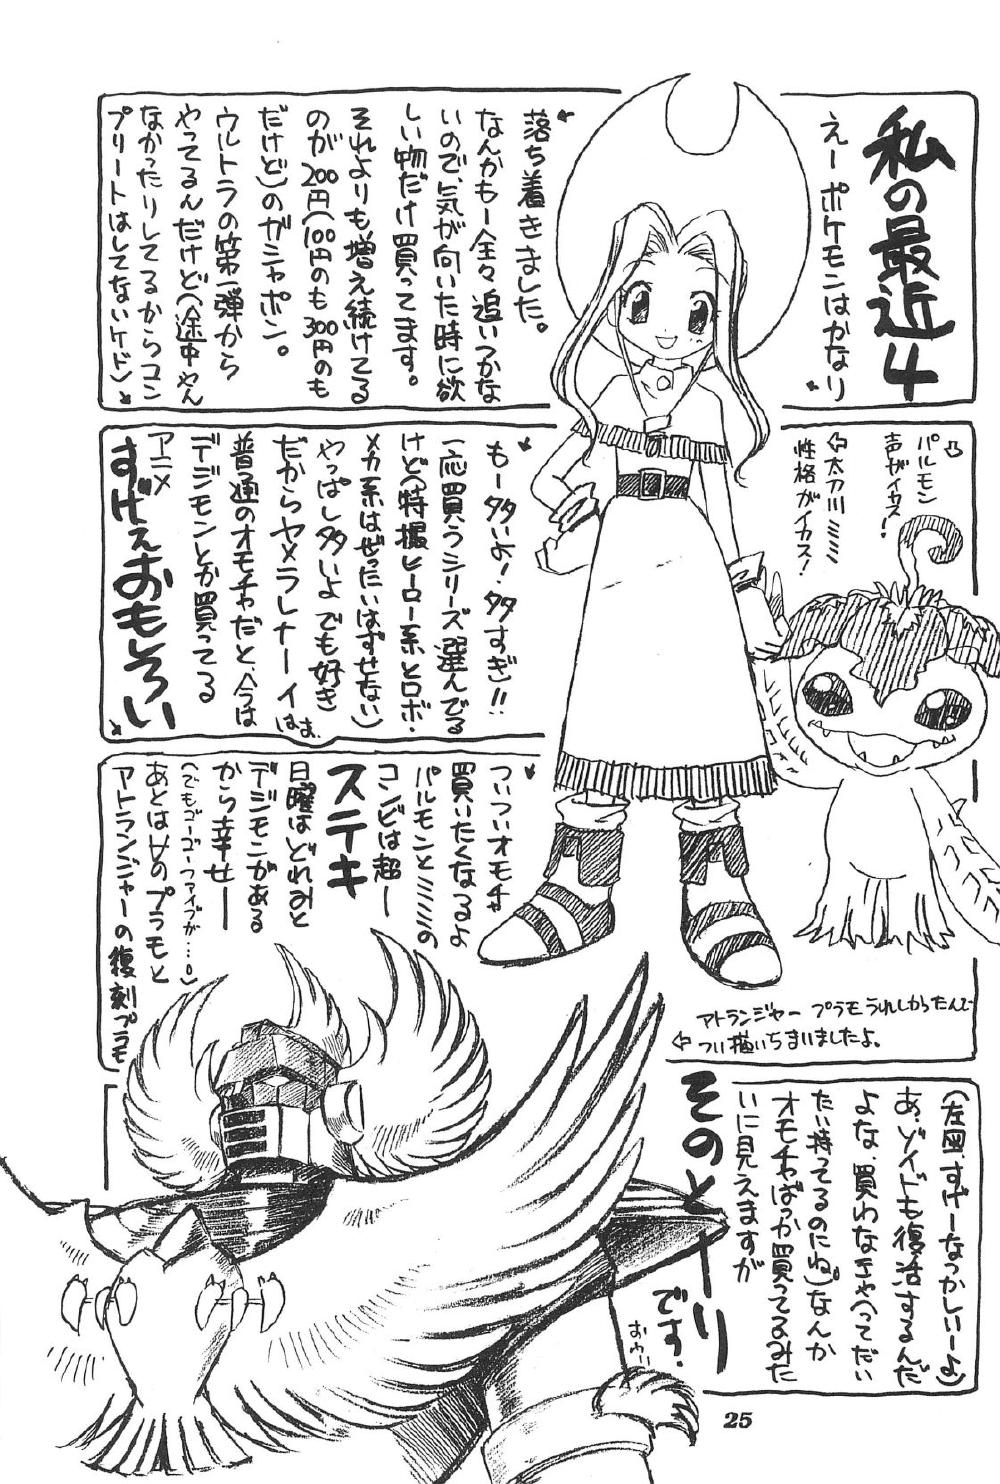 私の最近4
えーポケモンはかなり
落ち着きました。
なんかもー全々追いつかな
いので、気が向いた時に欲
しい物だけ買ってます。
それよりも増え続けてる
のが200円(100円のも300円のも
だけど)のガシャポン。
ウルトラの第一弾から
やってるんだけど(途中やん
なかったりしてるからコン
プリートはしてないケド)
もー多いよ!多すぎ!!
一応買うシリーズ選んでる
けど(特撮ヒーロー系とロボ・
メカ系はぜったいはずせない)
やっぱし多いよ でも好き
だからヤメラレナーイ
はぁ
普通のオモチャだと、今は
デジモンとか買ってる
アニメ
すげぇおもしろい
パルモン
声がイカス!
⇦太刀川ミミ
性格がイカス!
ついついオモチャ
買いたくなるよ
パルモンとミミの
コンビは超ー
ステキ
日曜はどれみと
デジモンがある
から幸せー
(でもゴーゴーファイブが…。)
あとは∀のプラモと
アトランジャーの復刻プラモ
アトランジャー プラモうれしかったんで
⇦つい描いちまいましたよ。
(左図。すげーなっかしいーよ)
あ、ゾイドも復活するんだ
よな、買わなきゃ(ってだい
たい持ってるのにね)なんか
オモチャばっか買ってるみた
いに見えますが
そのとーり
です。
おぅ!!
25